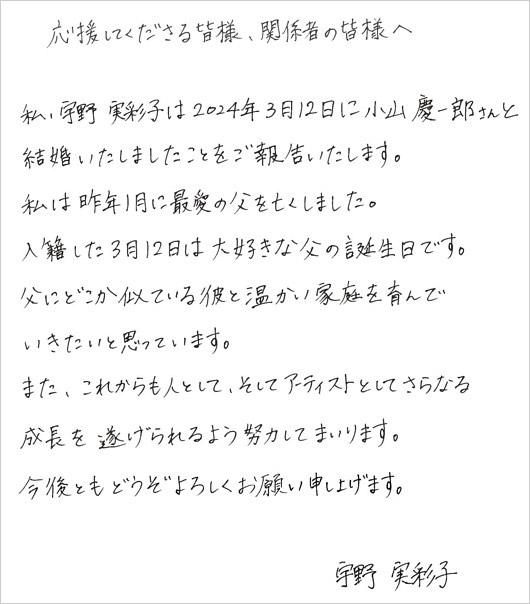 応援してくださる皆様、関係者の皆様へ
私、宇野 実彩子は2024年3月12日に小山 慶一郎さんと
結婚いたしましたことをご報告いたします。
私は昨年1月に最愛の父を亡くしました。
入籍した3月12日は大好きな父の誕生日です。
父にどこか似ている彼と温かい家庭を育んで
いきたいと思っています。
また、これからも人として、そしてアーティストとしてさらなる
成長を遂げられるよう努力してまいります。
今後ともどうぞよろしくお願い申し上げます。
宇野 実彩子